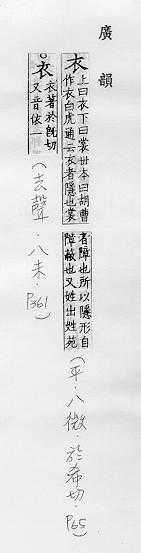 廣韻
衣上曰衣下曰裳世本曰胡曹
作衣白虎通云衣者隱也裳
者障也所以隱形自
障蔽也又姓出姓苑
(平．八微．於希切．P65)
衣衣著於既切
又音依一
(去聲．八未．P361)